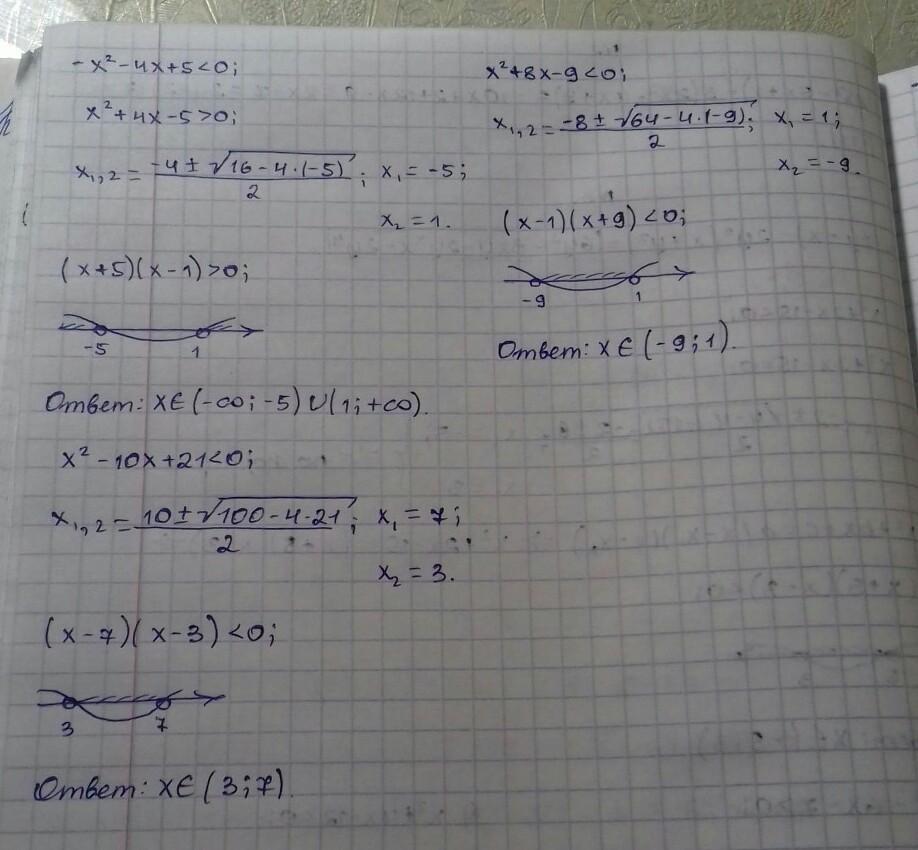 -x²-4x+5<0;
x²+4x-5>0;
x₁,₂ = (-4±√(16-4·(-5)))/2; x₁ = -5;
x₂ = 1.
(x+5)(x-1)>0;
-5 1
Ответ: x∈(-∞;-5)∪(1;+∞).
x²-10x+21<0;
x₁,₂ = (10±√(100-4·21))/2; x₁ = 7;
x₂ = 3.
(x-7)(x-3)<0;
3 7
Ответ: x∈(3;7).
x²+8x-9<0;
x₁,₂ = (-8±√(64-4·(-9)))/2; x₁ = 1;
x₂ = -9.
(x-1)(x+9)<0;
-9 1
Ответ: x∈(-9;1).